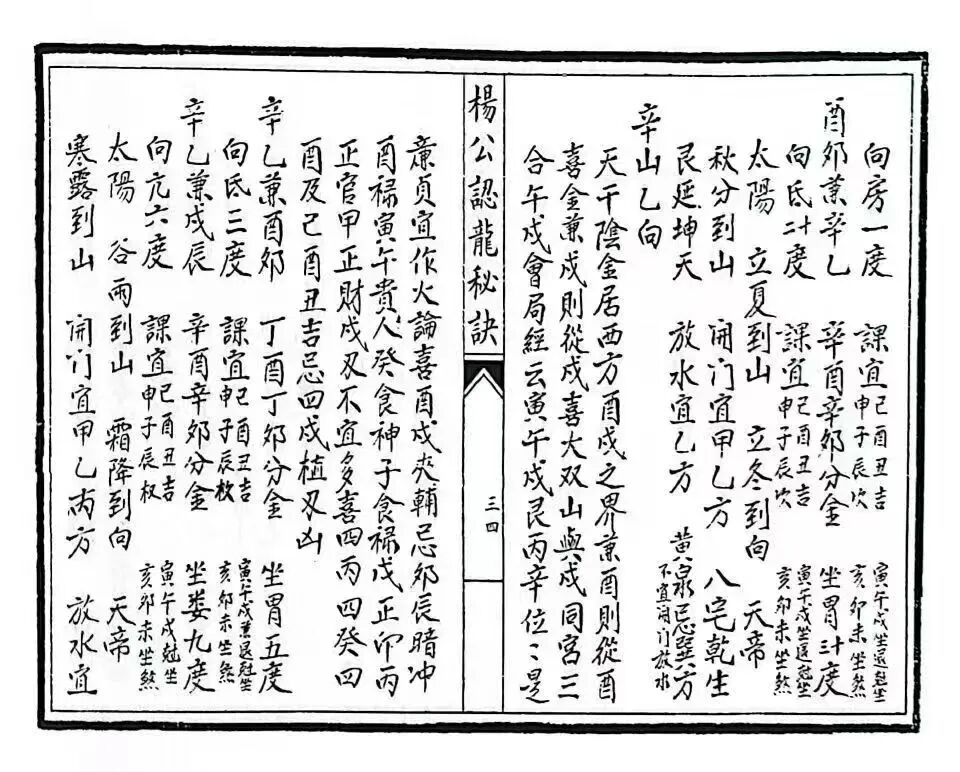 向房一度　課宜己酉丑吉申子辰次　寅午戌坐退尅坐亥卯未坐煞
酉卯兼辛乙　辛酉辛卯分金　坐胃三十度
向氐二十度　課宜己酉丑吉申子辰次　寅午戌坐退尅坐亥卯未坐煞
太陽　立夏到山　立冬到向　天帝
秋分到山　開门宜甲乙方　八宅乾生
艮延坤天　放水宜乙方　黄泉忌巽方不宜開门放水
辛山乙向
天干陰金居西方酉戌之界兼酉則從酉
喜金兼戌則從戌喜大双山與戌同宮三
合午戌會局經云寅午戌艮丙辛位々是
楊公認龍秘訣
三四
亷貞宜作火論喜酉戌夾輔忌卯辰暗冲
酉禄寅午貴人癸食神子食禄戊正印丙
正官甲正財戌刄不宜多喜四丙四癸四
酉及己酉丑吉忌四戌植刄凶
辛乙兼酉卯　丁酉丁卯分金　坐胃五度
向氐三度　課宜己酉丑吉申子辰枚　寅午戌兼退尅坐亥卯未坐煞
辛乙兼戌辰　辛酉辛卯分金　坐娄九度
向亢六度　課宜己酉丑吉申子辰权　寅午戌尅坐亥卯未坐煞
太陽　谷雨到山　霜降到向　天帝
寒露到山　開门宜甲乙丙方　放水宜